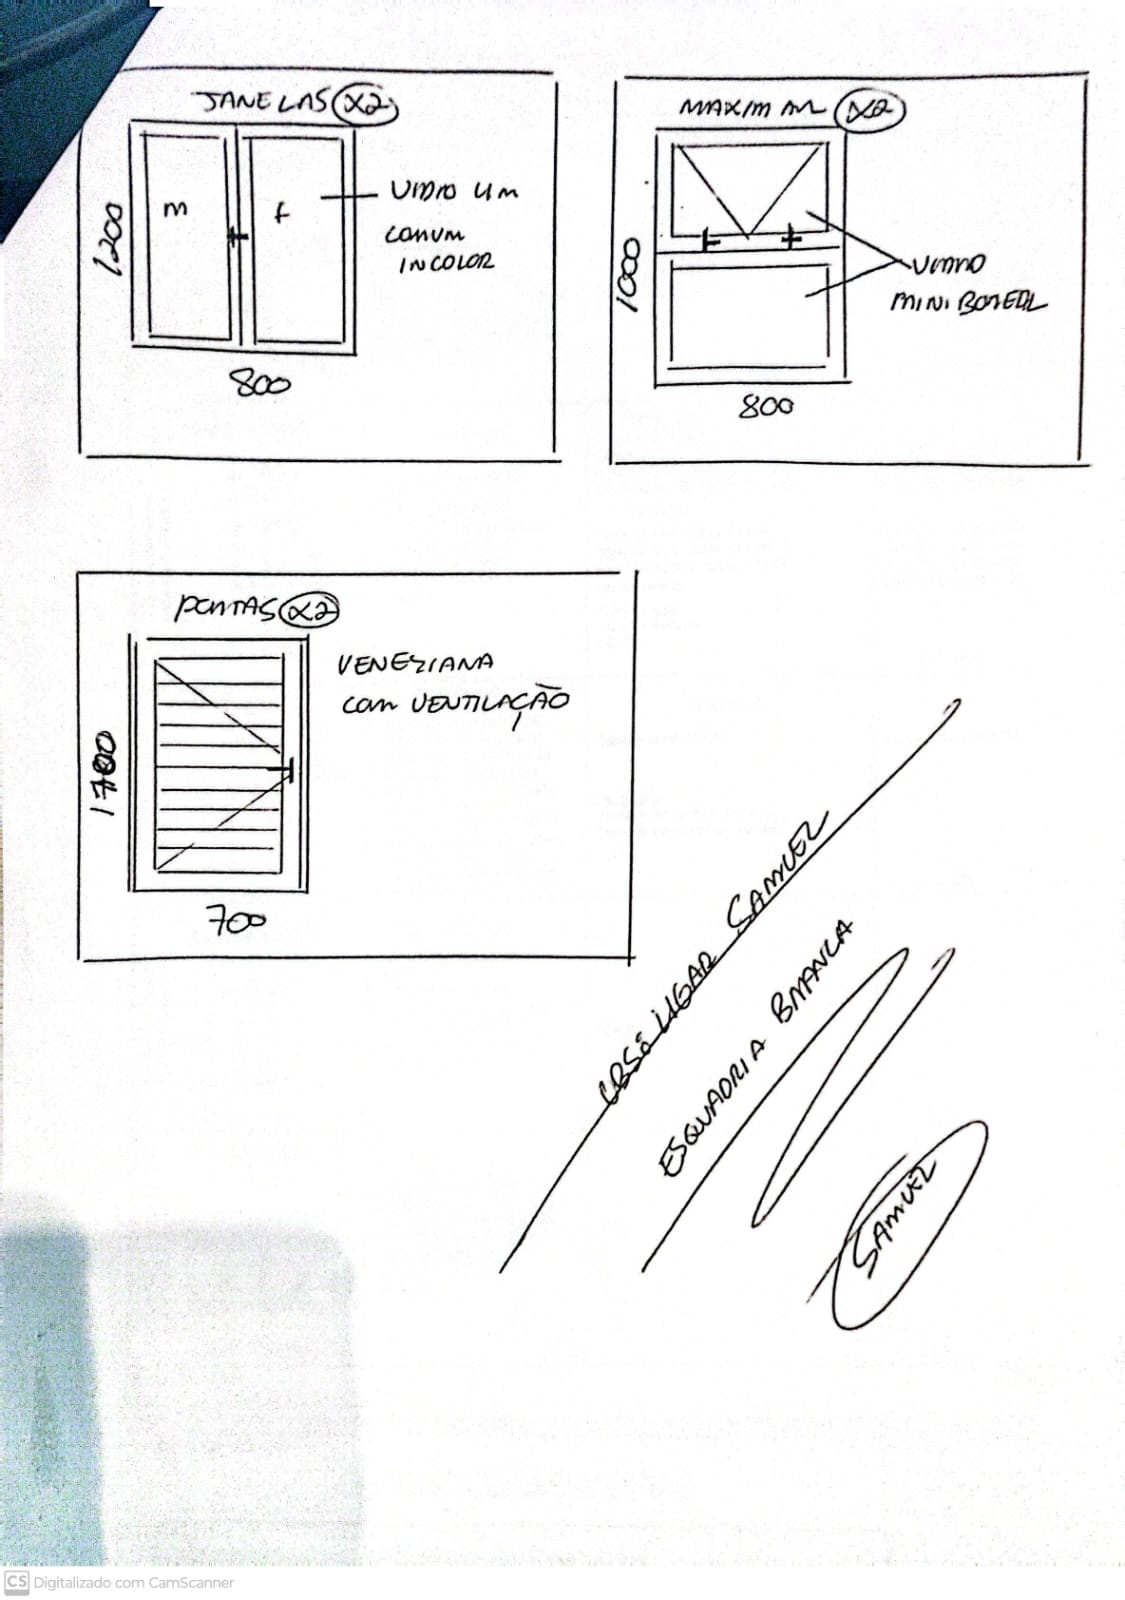 JANELAS X2
m
f
VIDRO 4m
COMUM
INCOLOR
1200
800
MAXIM AR X2
1000
VIDRO
MINI BOREAL
800
PORTAS X2
VENEZIANA
com VENTILAÇÃO
1700
700
LIGAR SAMUEL
ESQUADRIA BRANCA
SAMUEL
CS Digitalizado com CamScanner